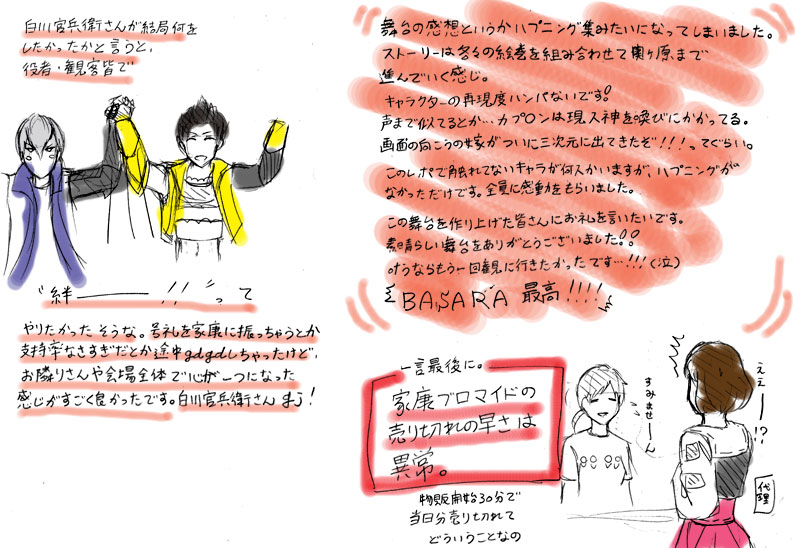 白川官兵衛さんが結局何を
したかったかと言うと、
役者・観客皆で
“絆——!!”って
やりたかったそうな。号礼を家康に振っちゃうとか
支持率なさすぎだとか途中gdgdしちゃったけど、
お隣りさんや会場全体で心が一つになった
感じがすごく良かったです。白川官兵衛さんまう!
舞台の感想というかハプニング集みたいになってしまいました。
ストーリーは各々の絵巻を組み合わせて関ヶ原まで
進んでいく感じ。
キャラクターの再現度ハンパないです!
声まで似てるとか…カプコンは現人神を喚びにかかってる。
画面の向こうの嫁がついに三次元に出てきたぞ!!!ってぐらい。
このレポで触れてないキャラが何人かいますが、ハプニングが
なかっただけです。全員に感動をもらいました。
この舞台を作り上げた皆さんにお礼を言いたいです。
素晴らしい舞台をありがとうございました!!
叶うならもう一回観に行きたかったです…!!!(泣)
BASARA 最高!!!!
一言最後に。
家康ブロマイドの
売り切れの早さは
異常。
物販開始30分で
当日分売り切れて
どういうことなの
すみませーん
ええー!?
代理